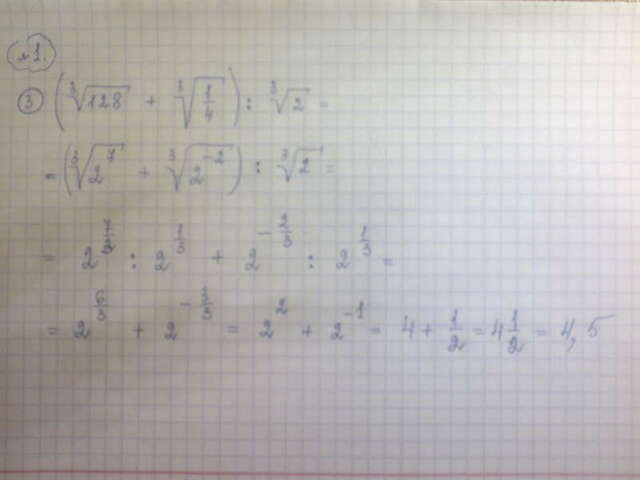 №1.
③ (∛128 + ∛(1/4)) : ∛2 =
= (∛(2^7) + ∛(2^(-2))) : ∛2 =
= 2^(7/3) : 2^(1/3) + 2^(-2/3) : 2^(1/3) =
= 2^(6/3) + 2^(-3/3) = 2^2 + 2^(-1) = 4 + 1/2 = 4 1/2 = 4,5